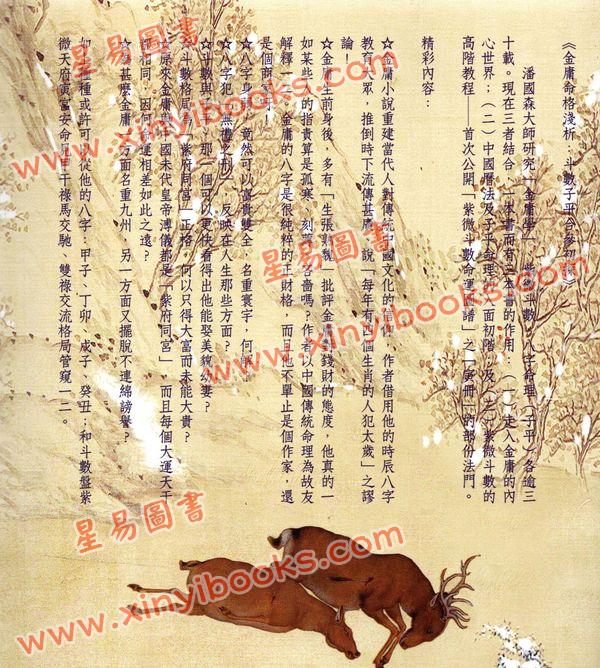 《金庸命格淺析:斗數子平合參初
潘國森大師研究「金庸學」、紫微斗數、八字命理(子平)各逾三
十載。現在三者結合,一本書而有三本書的作用:(一)走入金庸的內
心世界;(二)中國曆法及子平命理的全面初階;及(三)紫微斗數的
高階教程——首次公開「紫微斗數命運圖譜」之「冊」的部份法門。
精彩內容:
☆金庸小說重建當代人對傳統中國文化的信仰,作者借用他的時辰八字
教育大眾,推倒時下流傳甚廣、說「每年有四個生肖的人犯太歲」之謬
論!
☆金庸生前身後,多有「生張熟魏」批評金庸對錢財的態度,他真的一
如某些人的指責算是孤寒、刻薄、吝嗇嗎?作者以中國傳統命理為故友
解釋一二。金庸的八字是很純粹的正財格,而且他不單止是個作家,還
是個商家!
☆八字身弱,竟然可以富貴雙全、名重寰宇,何解?
☆八字犯「無禮之刑」,反映在人生那些方面?
☆斗數與八字,那一個可以更快看得出他能娶美貌幼妻?
☆斗數格局為「紫府同宮」正格,何以只得大富而未能大貴?
☆原來金庸與中國末代皇帝溥儀都是「紫府同宮」,而且每個大運天干
都相同。因何命運相差如此之遠?
☆為甚麼金庸一方面名重九州,另一方面又擺脫不連綿謗譽?
如上種種或許可從他的八字:甲子、丁卯、戊子、癸丑;和斗數盤紫
微天府寅宮安命、甲干祿馬交馳、雙祿交流格局管窺一二。
星易圖書
www.xinyibooks.com
星易圖書
www.xinyibooks.com
星易圖書
www.xinyibooks.com
星易圖書
www.xinyibooks.com